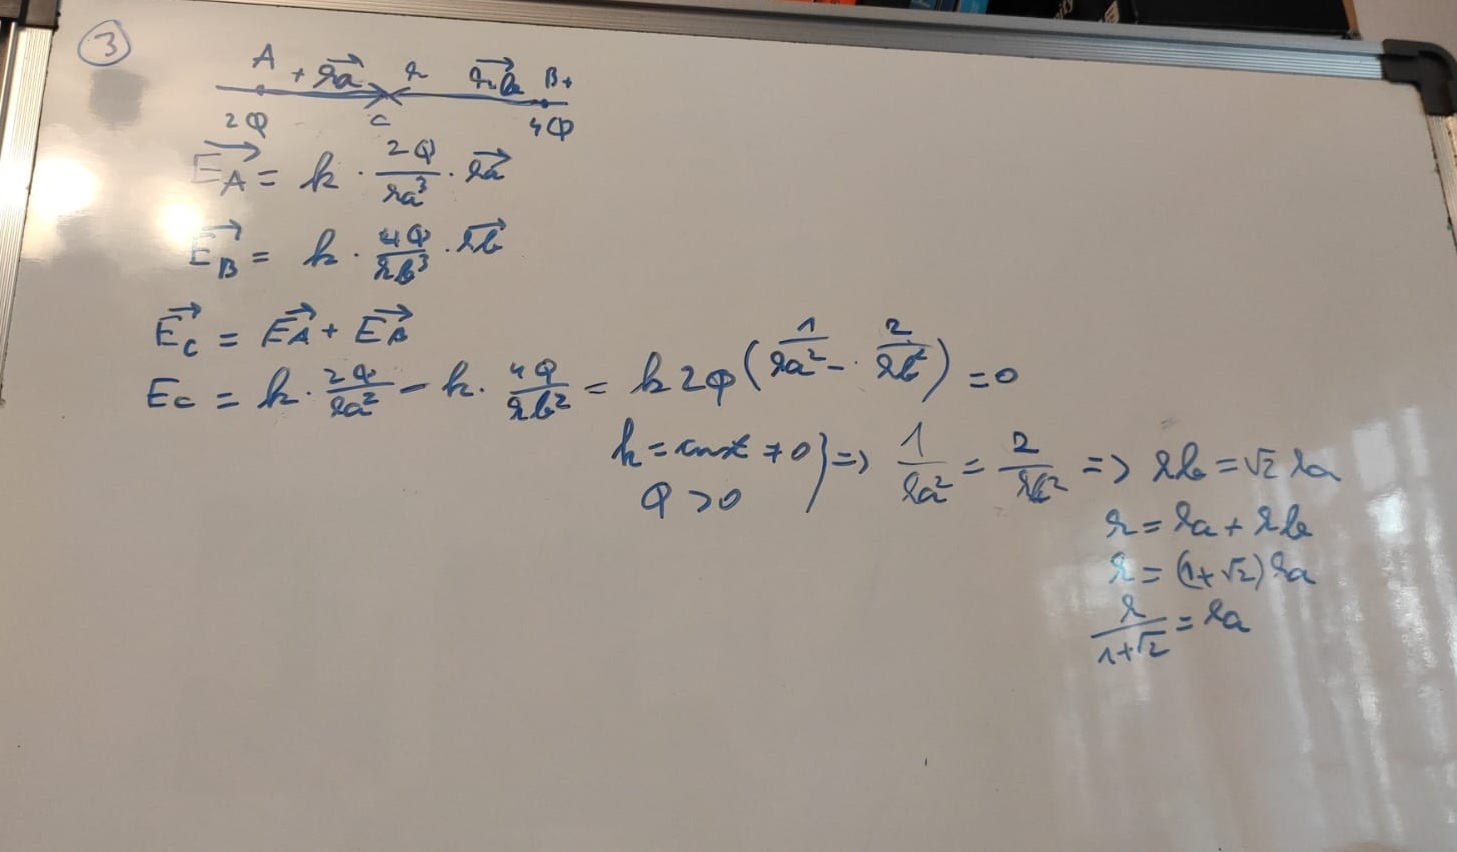 3
A + r⃗a r r⃗b B+
2Q C 4Q
E⃗A = k · 2Q/ra³ · r⃗a
E⃗B = k · 4Q/rb³ · r⃗b
E⃗C = E⃗A + E⃗B
EC = k · 2Q/ra² - k · 4Q/rb² = k2Q(1/ra² - 2/rb²) = 0
k = const ≠ 0 } => 1/ra² = 2/rb² => rb = √2 ra
Q > 0
r = ra + rb
r = (1+√2) ra
r/(1+√2) = ra